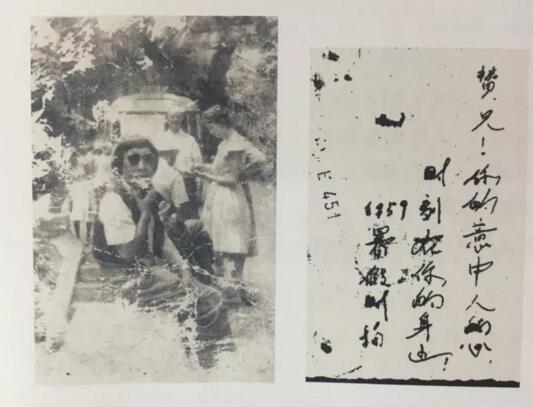 赞兄！你的意中人的心，
时刻在你的身边！
1959
暑假时拍
E 451